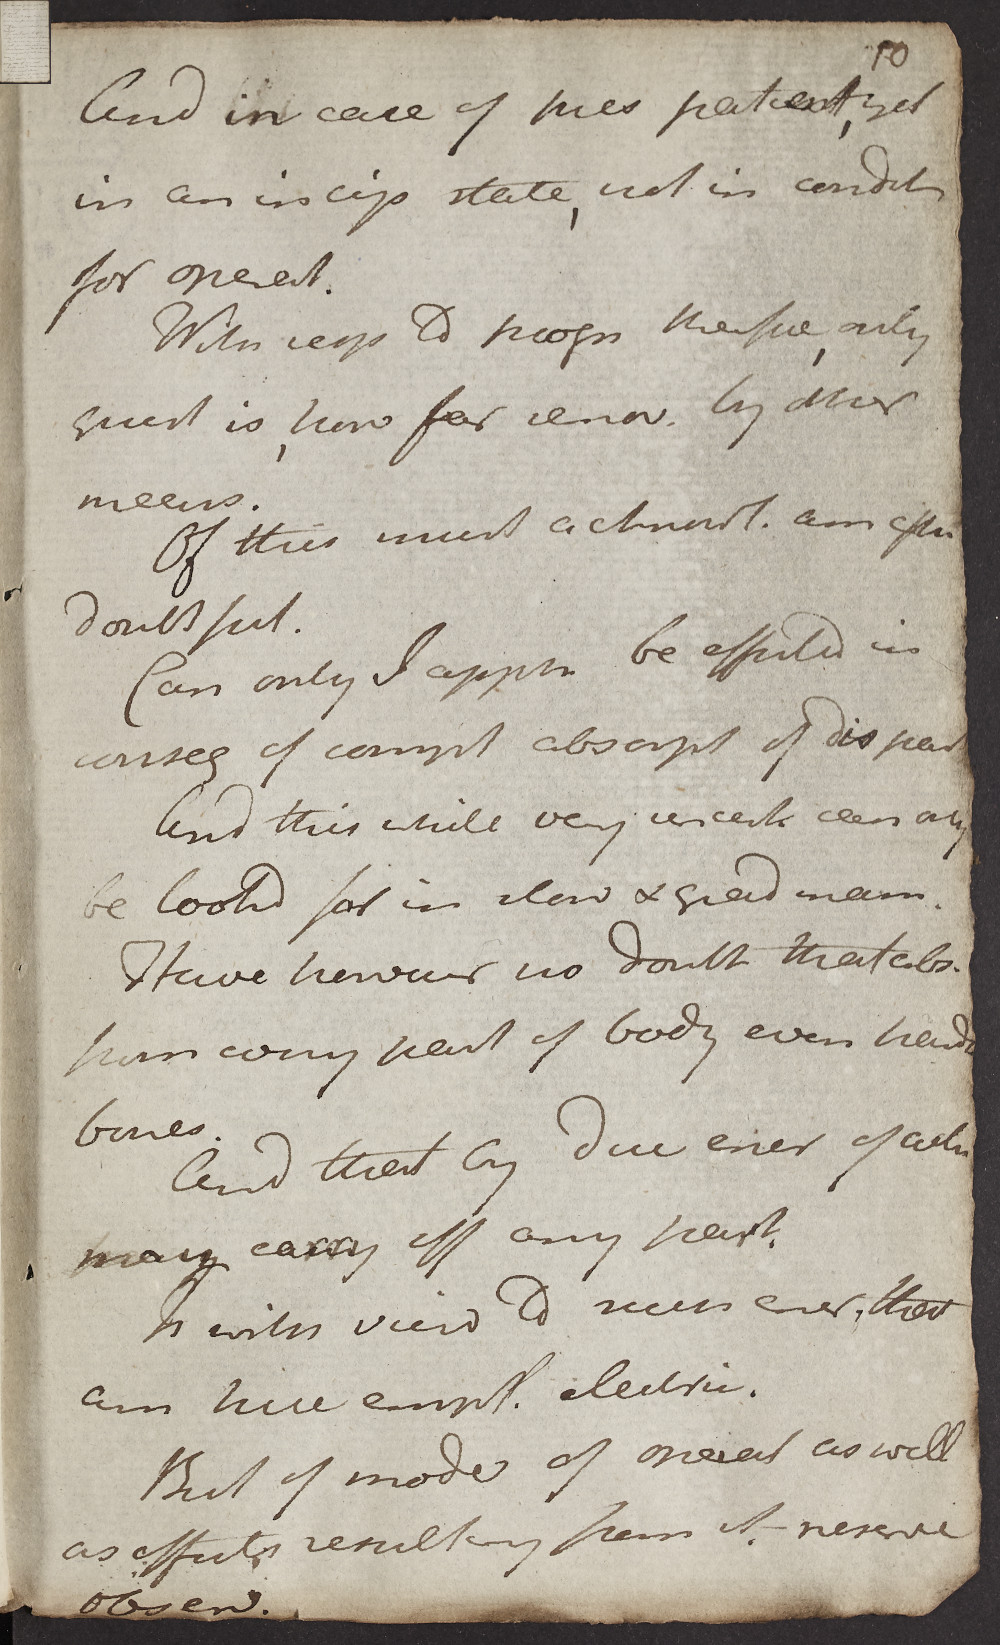 10
And in case of pres patient, yet
in an incip state, not in condit
for operat.
With resp to progn therefore, only
quest is, how far remov. by other
means.
Of this must acknowl. am often
doubtful.
Can only I appreh be effected in
conseq of compt absorpt of dis part
And this while very weak can only
be look'd for in slow & grad mann.
Have however no doubt that abs.
from every part of body even hardt
bones.
And that by due ener of actn
may carry off any part.
Is with view to such ener. that
am here empl. electric.
But of mode of operat as well
as effects resulting from it. reserve
observ.